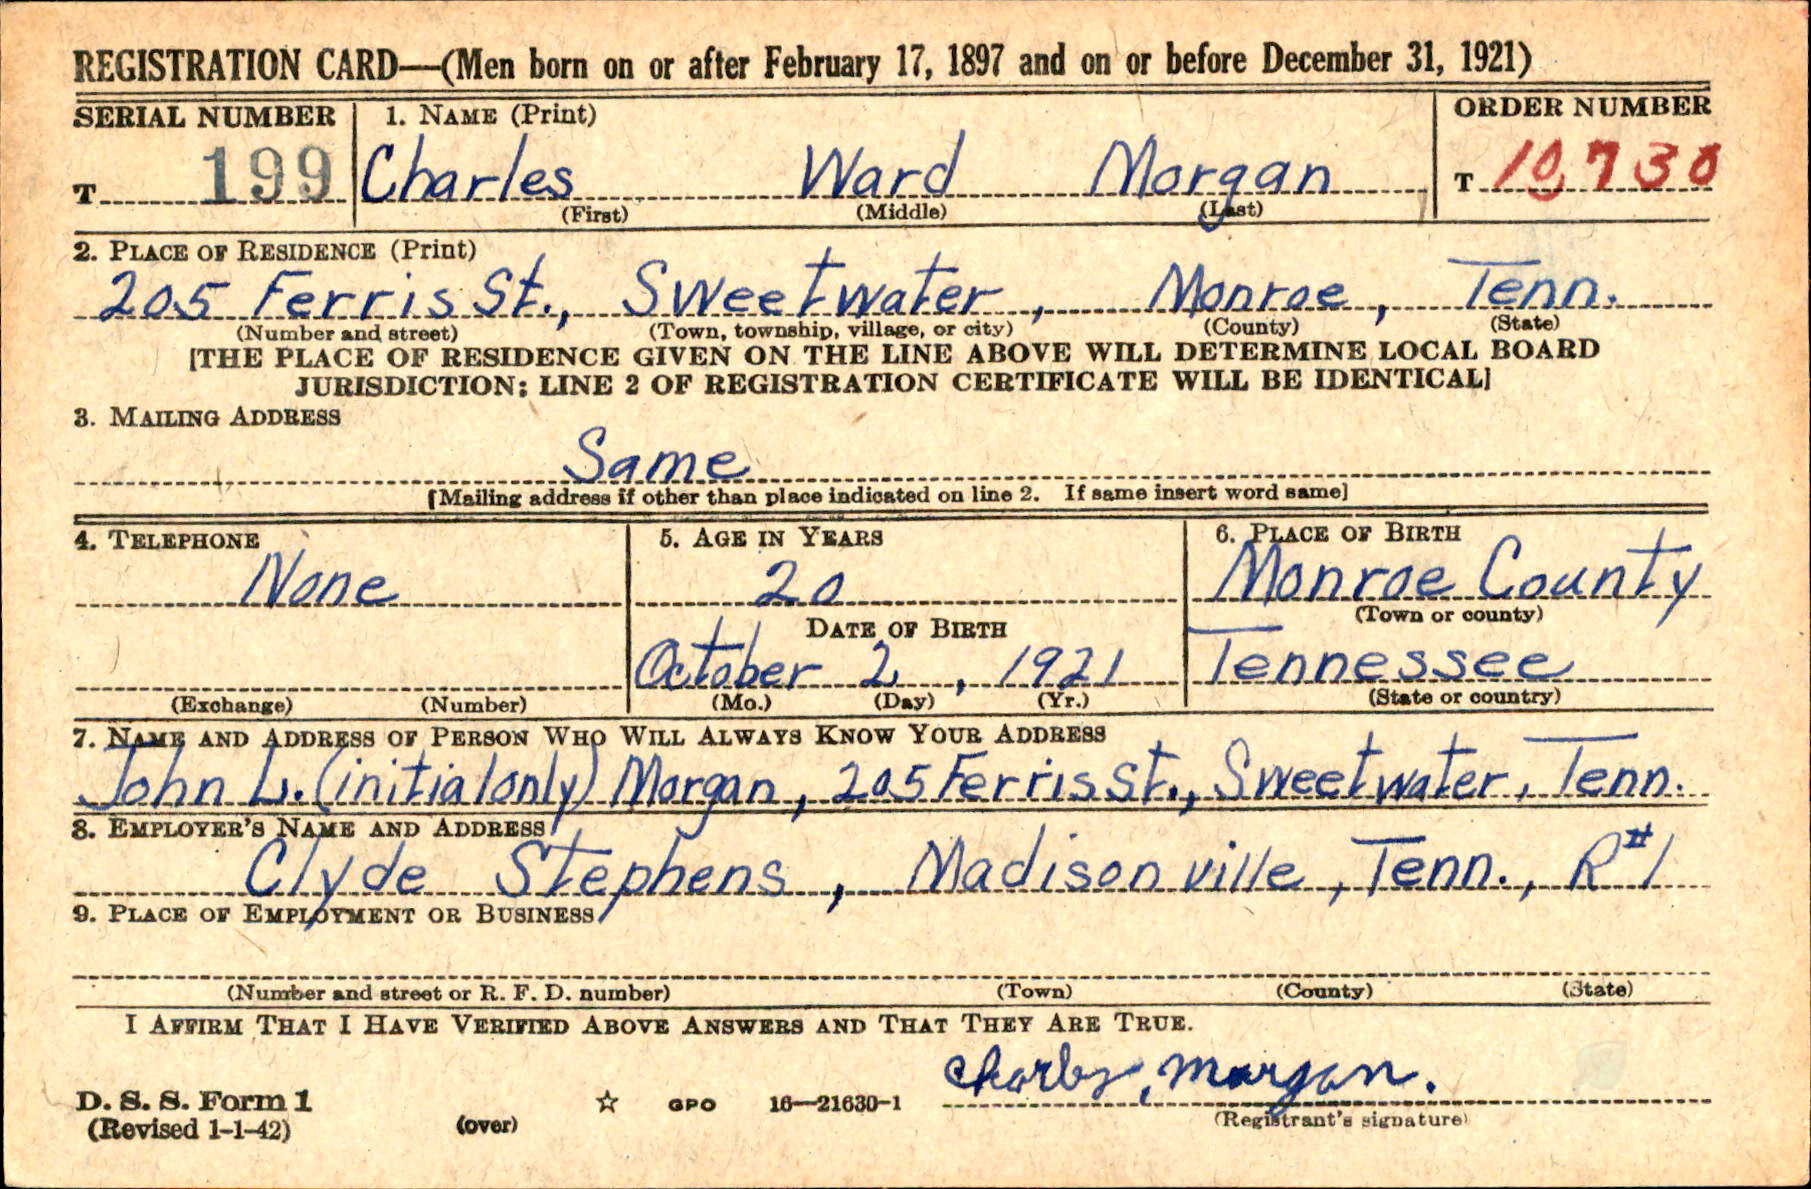 REGISTRATION CARD—(Men born on or after February 17, 1897 and on or before December 31, 1921)
SERIAL NUMBER 1. NAME (Print) ORDER NUMBER
T 199 Charles Ward Morgan T 10,730
(First) (Middle) (Last)
2. PLACE OF RESIDENCE (Print)
205 Ferris St., Sweetwater, Monroe, Tenn.
(Number and street) (Town, township, village, or city) (County) (State)
[THE PLACE OF RESIDENCE GIVEN ON THE LINE ABOVE WILL DETERMINE LOCAL BOARD
JURISDICTION; LINE 2 OF REGISTRATION CERTIFICATE WILL BE IDENTICAL]
3. MAILING ADDRESS
Same
[Mailing address if other than place indicated on line 2. If same insert word same]
4. TELEPHONE 5. AGE IN YEARS 6. PLACE OF BIRTH
None 20 Monroe County
DATE OF BIRTH (Town or county)
October 2, 1921 Tennessee
(Exchange) (Number) (Mo.) (Day) (Yr.) (State or country)
7. NAME AND ADDRESS OF PERSON WHO WILL ALWAYS KNOW YOUR ADDRESS
John L. (initial only) Morgan, 205 Ferris St., Sweetwater, Tenn.
8. EMPLOYER'S NAME AND ADDRESS
Clyde Stephens, Madisonville, Tenn., R#1
9. PLACE OF EMPLOYMENT OR BUSINESS
(Number and street or R. F. D. number) (Town) (County) (State)
I AFFIRM THAT I HAVE VERIFIED ABOVE ANSWERS AND THAT THEY ARE TRUE.
Morgan.
D. S. S. Form 1 ☆ GPO 16—21630-1
(Revised 1-1-42) (over) (Registrant's signature)